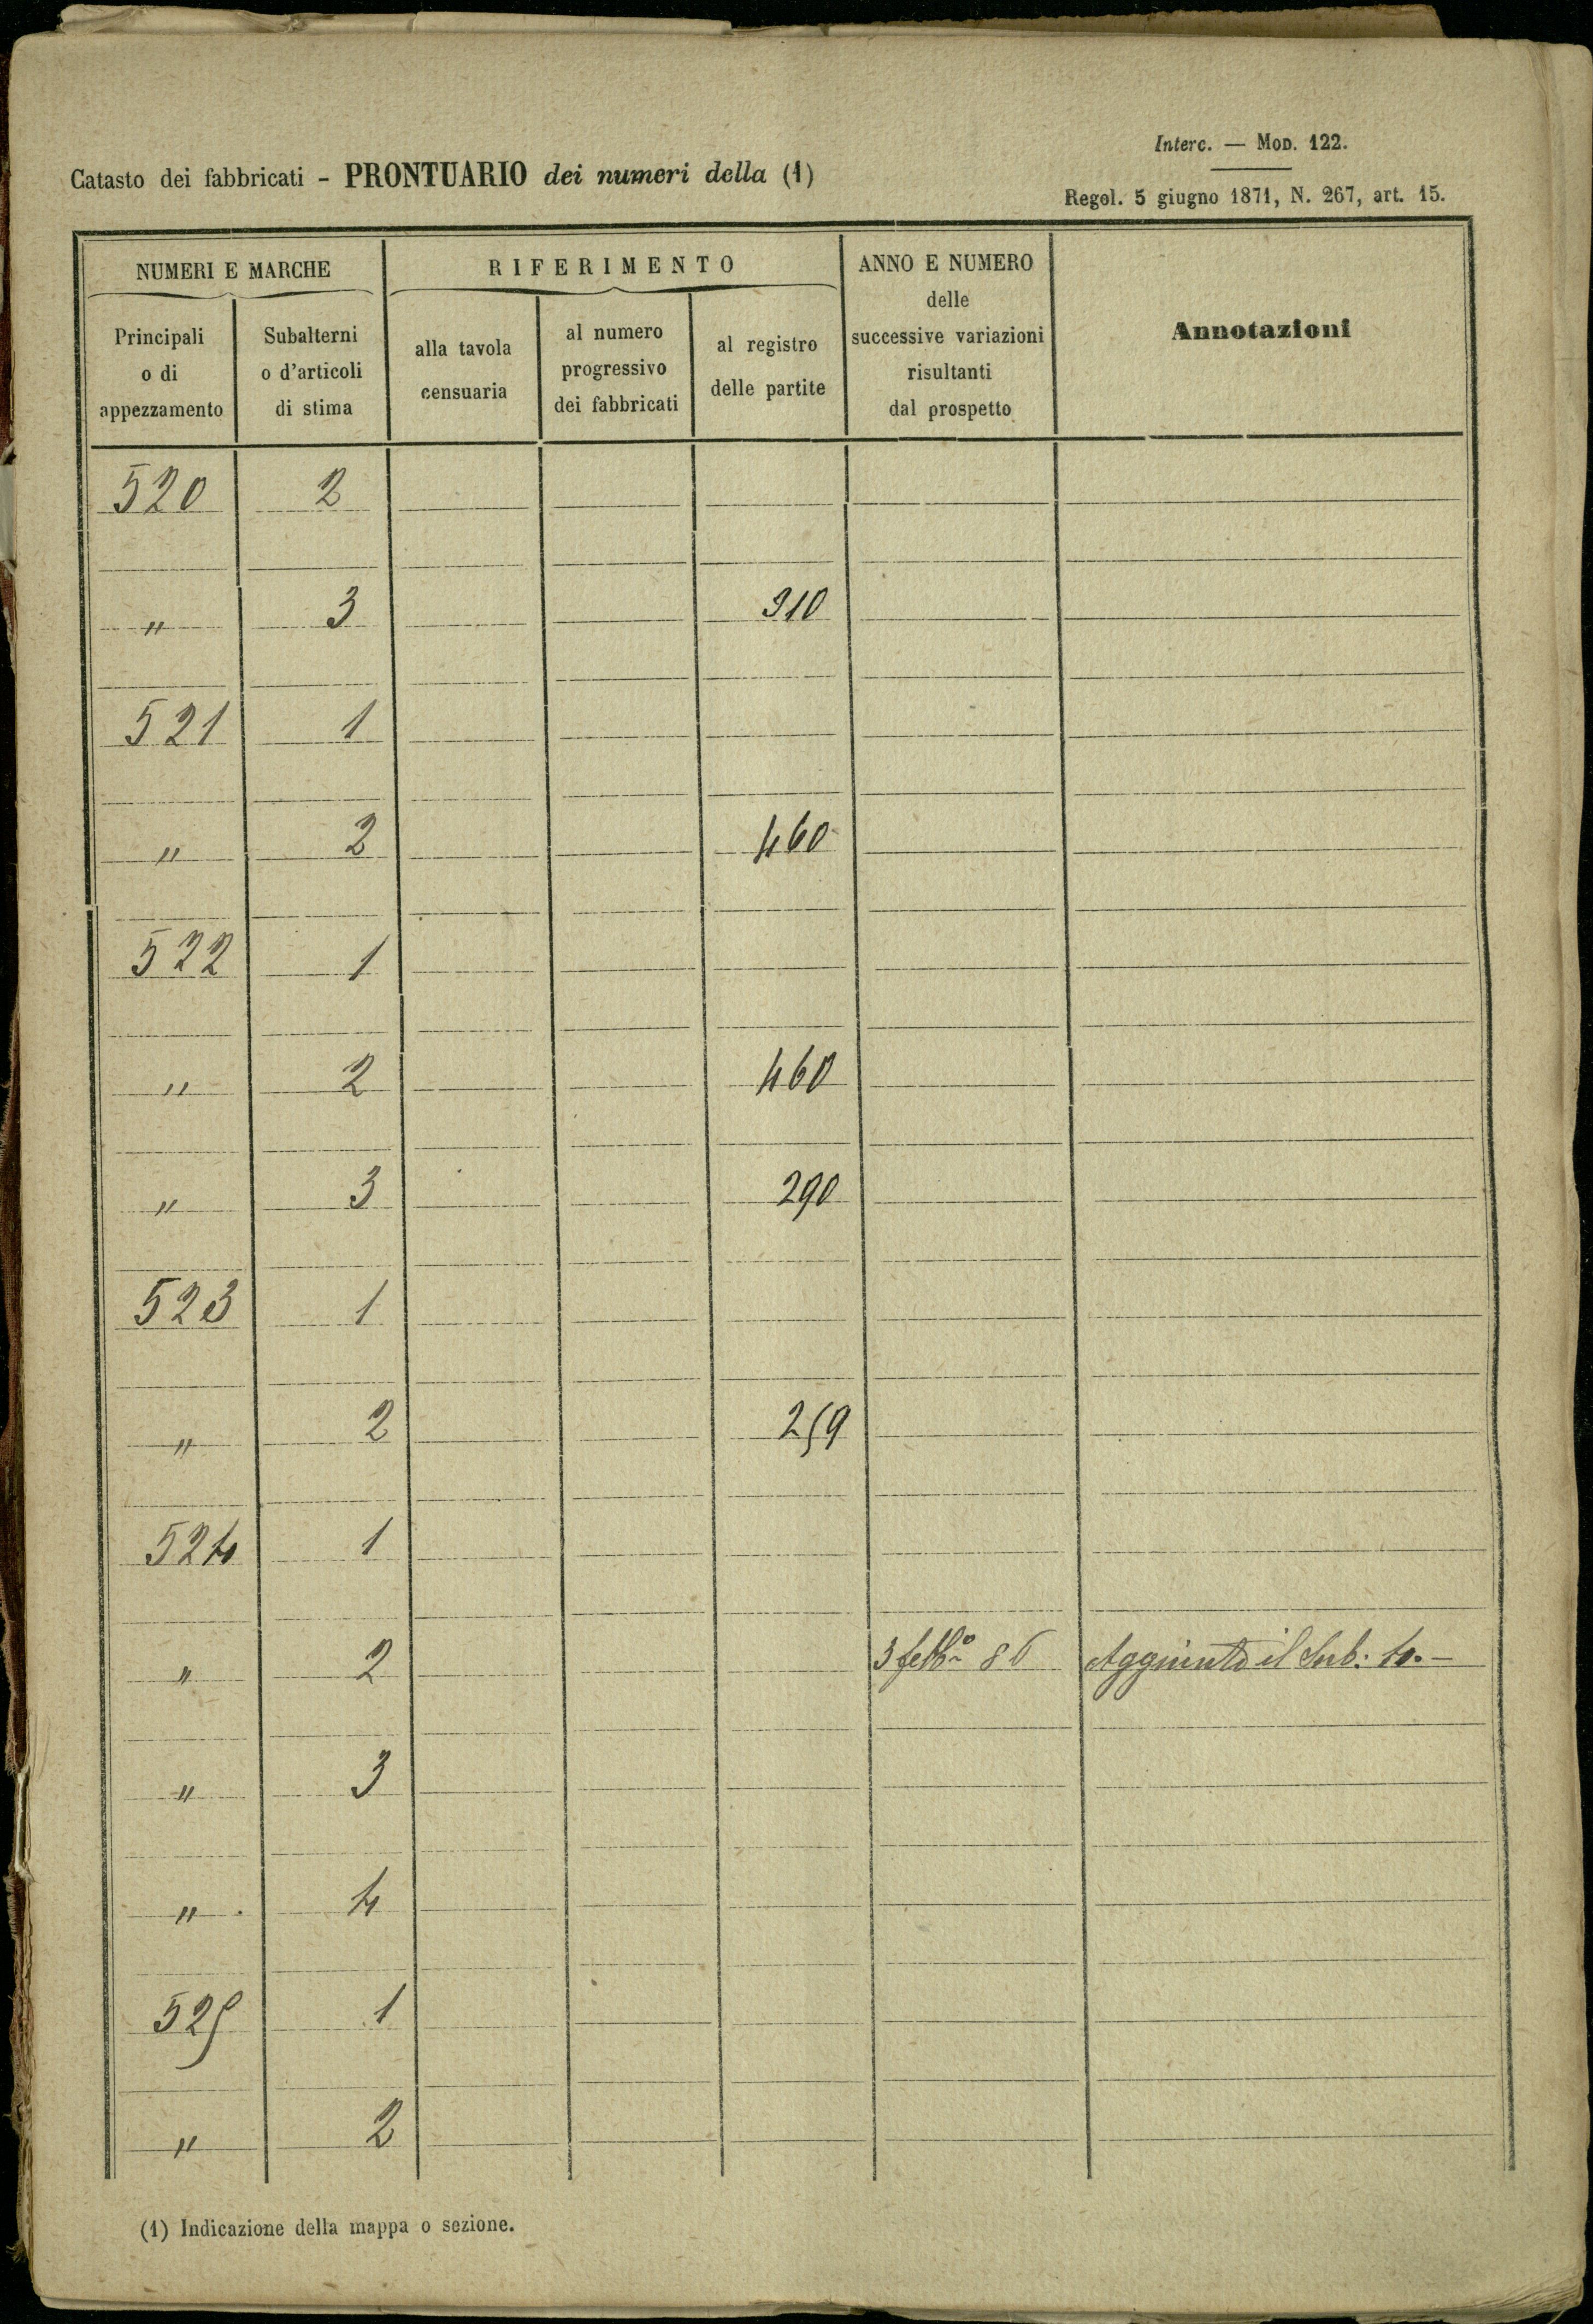 Interc. — Mod. 122.
Catasto dei fabbricati - PRONTUARIO dei numeri della (1)
Regol. 5 giugno 1871, N. 267, art. 15.
NUMERI E MARCHE
RIFERIMENTO
ANNO E NUMERO
delle
successive variazioni
risultanti
dal prospetto
Annotazioni
Principali
o di
appezzamento
Subalterni
o d'articoli
di stima
alla tavola
censuaria
al numero
progressivo
dei fabbricati
al registro
delle partite
520 2
" 3 310
521 1
" 2 460
522 1
" 2 460
" 3 290
523 1
" 2 259
524 1
" 2 3 febb.º 86 Aggiunto il Sub: 4.-
" 3
" 4
525 1
" 2
(1) Indicazione della mappa o sezione.